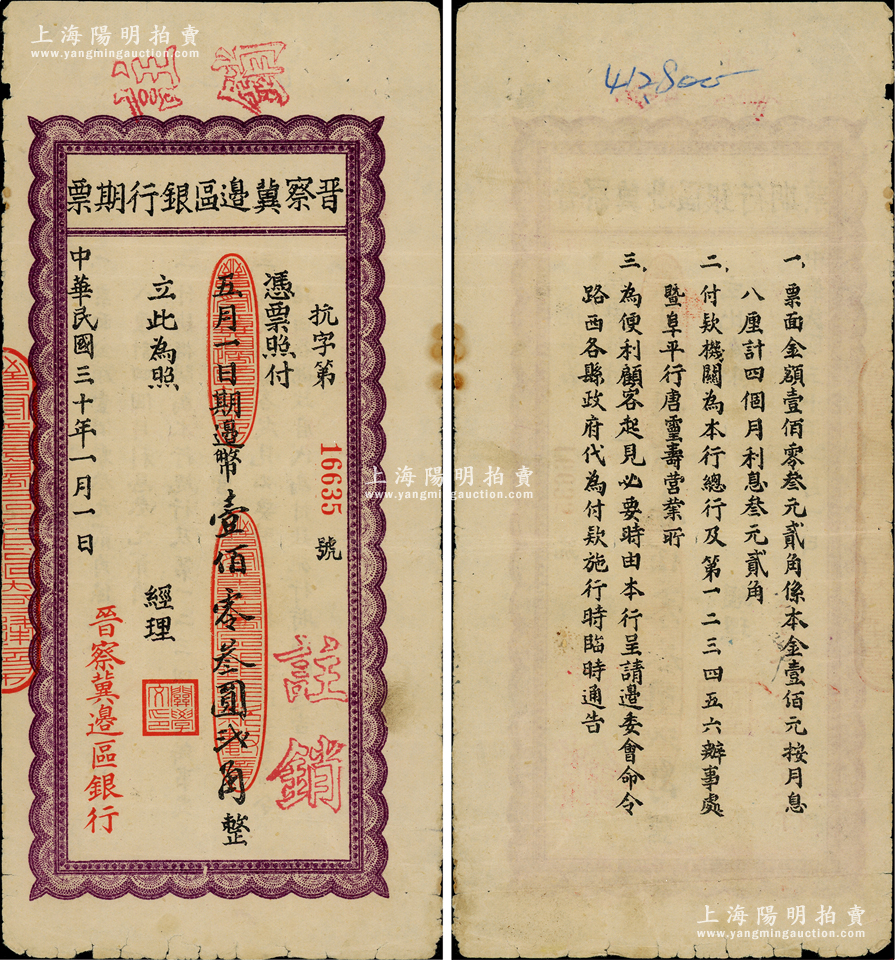 上海陽明拍賣
www.yangmingauction.com
註銷
晋察冀邊區銀行期票
抗字第 16635 號
憑票照付
五月一日期邊幣壹佰零叁圓弍角整
立此為照
經理
晉察冀邊區銀行
中華民國三十年一月一日
註銷
上海陽明拍賣
www.yangmingauction.com
上海陽明拍賣
www.yangmingauction.com
412800
一、票面金額壹佰零叁元貳角係本金壹佰元按月息
八厘計四個月利息叁元貳角
二、付欵機關為本行總行及第一二三四五六辦事處
暨阜平行唐靈壽营業所
三、為便利顧客起見必要時由本行呈請邊委會命令
路西各縣政府代為付欵施行時臨時通告
上海陽明拍賣
www.yangmingauction.com